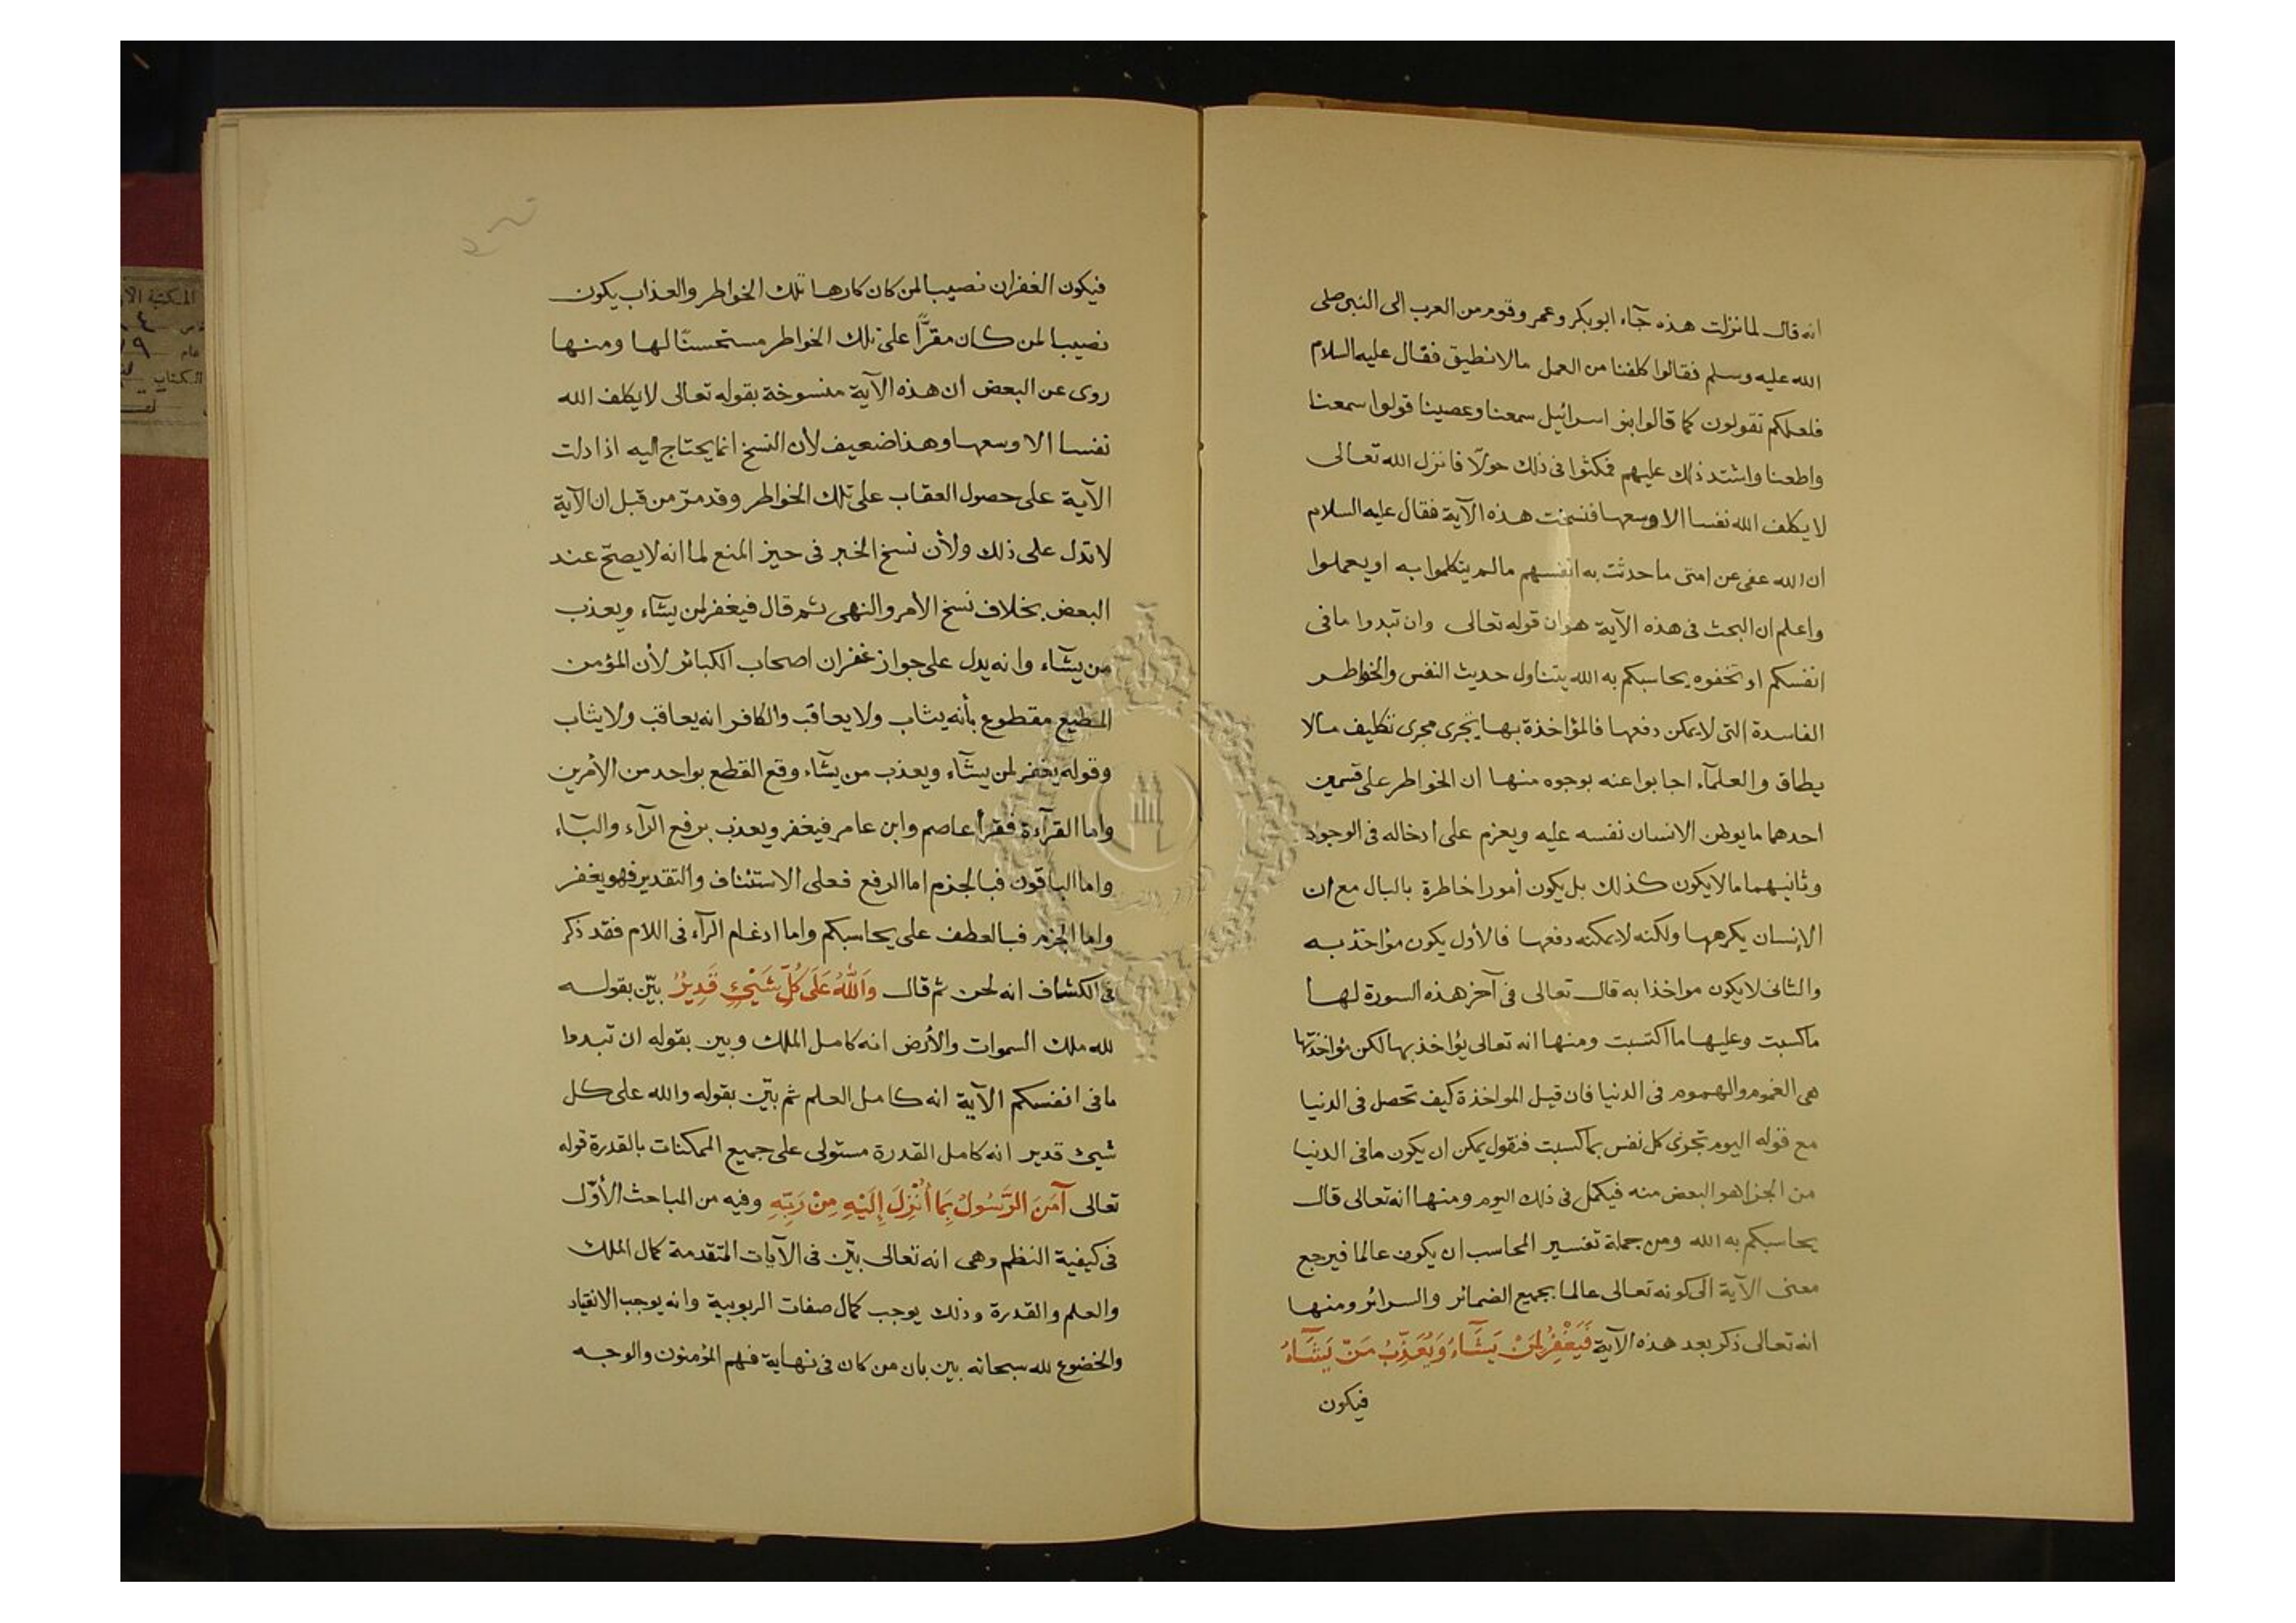 انه قال لما نزلت هذه جآء ابو بكر وعمر وقوم من العرب الى النبى صلى
الله عليه وسلم فقالوا كلفنا من العمل مالا نطيق فقال عليه السلام
فلعلكم تقولون كما قالوا بنو اسرائيل سمعنا وعصينا قولوا سمعنا
واطعنا واشتد ذلك عليهم فمكثوا فى ذلك حولا فانزل الله تعالى
لا يكلف الله نفسا الا وسعها فنسخت هذه الآية فقال عليه السلام
ان الله عفى عن امتى ما حدثت به انفسهم مالم يتكلموا به او يعملوا
واعلم ان البحث فى هذه الآية هو ان قوله تعالى وان تبدوا مافى
انفسكم او تخفوه يحاسبكم به الله يتناول حديث النفس والخواطر
الفاسدة التى لا يمكن دفعها فالمؤاخذة بها يجرى مجرى تكليف مالا
يطاق والعلمآء اجابوا عنه بوجوه منها ان الخواطر على قسمين
احدهما ما يوطن الانسان نفسه عليه ويعزم على ادخاله فى الوجود
وثانيهما مالا يكون كذلك بل يكون أمورا خاطرة بالبال مع ان
الإنسان يكرهها ولكنه لا يمكنه دفعها فالأول يكون مؤاخذ به
والثانى لا يكون مواخذا به قال تعالى فى آخر هذه السورة لها
ما كسبت وعليها ما اكتسبت ومنها انه تعالى يؤاخذ بها لكن مؤاخذتها
هى الغموم والهموم فى الدنيا فان قيل المواخذة كيف تحصل فى الدنيا
مع قوله اليوم تجزى كل نفس بما كسبت فنقول يمكن ان يكون مافى الدنيا
من الجزا هو البعض منه فيكمل فى ذلك اليوم ومنها انه تعالى قال
يحاسبكم به الله ومن جملة تفسير المحاسب ان يكون عالما فيرجع
معنى الآية الى كونه تعالى عالما بجميع الضمائر والسرائر ومنها
انه تعالى ذكر بعد هذه الآية فَيَغْفِرُ لِمَنْ يَشَآءُ وَيُعَذِّبُ مَنْ يَشَآءُ
فيكون
فيكون الغفران نصيبا لمن كان كارها تلك الخواطر والعذاب يكون
نصيبا لمن كان مقرًّا على تلك الخواطر مستحسنًا لها ومنها
روى عن البعض أن هذه الآية منسوخة بقوله تعالى لا يكلف الله
نفسا الا وسعها وهذا ضعيف لأن النسخ انما يحتاج اليه اذا دلت
الآية على حصول العقاب على تلك الخواطر وقد مرّ من قبل ان الآية
لا تدل على ذلك ولأن نسخ الخبر فى حيز المنع لما انه لا يصحّ عند
البعض بخلاف نسخ الأمر والنهى ثم قال فيغفر لمن يشآء ويعذب
من يشآء وانه يدل على جواز غفران اصحاب الكبائر لأن المؤمن
المطيع مقطوع بأنه يثاب ولا يعاقب والكافر انه يعاقب ولا يثاب
وقوله يغفر لمن يشآء ويعذب من يشآء وقع القطع بواحد من الأمرين
واما القرآءة فقرأ عاصم وابن عامر فيغفر ويعذب برفع الرآء والبآء
واما الباقون فبالجزم اما الرفع فعلى الاستئناف والتقدير فهو يغفر
واما الجزم فبالعطف على يحاسبكم واما ادغام الرآء فى اللام فقد ذكر
فى الكشاف انه لحن ثم قال وَاللَّهُ عَلَى كُلِّ شَيْئٍ قَدِيرٌ بيّن بقوله
لله ملك السموات والأرض انه كامل الملك وبين بقوله ان تبدوا
مافى انفسكم الآية انه كامل العلم ثم بيّن بقوله والله على كل
شيئ قدير انه كامل القدرة مستولى على جميع الممكنات بالقدرة قوله
تعالى آمَنَ الرَّسُولُ بِمَا أُنْزِلَ إِلَيْهِ مِنْ رَبِّهِ وفيه من المباحث الأوّل
فى كيفية النظم وهى انه تعالى بيّن فى الآيات المتقدمة كمال الملك
والعلم والقدرة وذلك يوجب كمال صفات الربوبية وانه يوجب الانقياد
والخضوع لله سبحانه بين بان من كان فى نهاية فهم المؤمنون والوجه